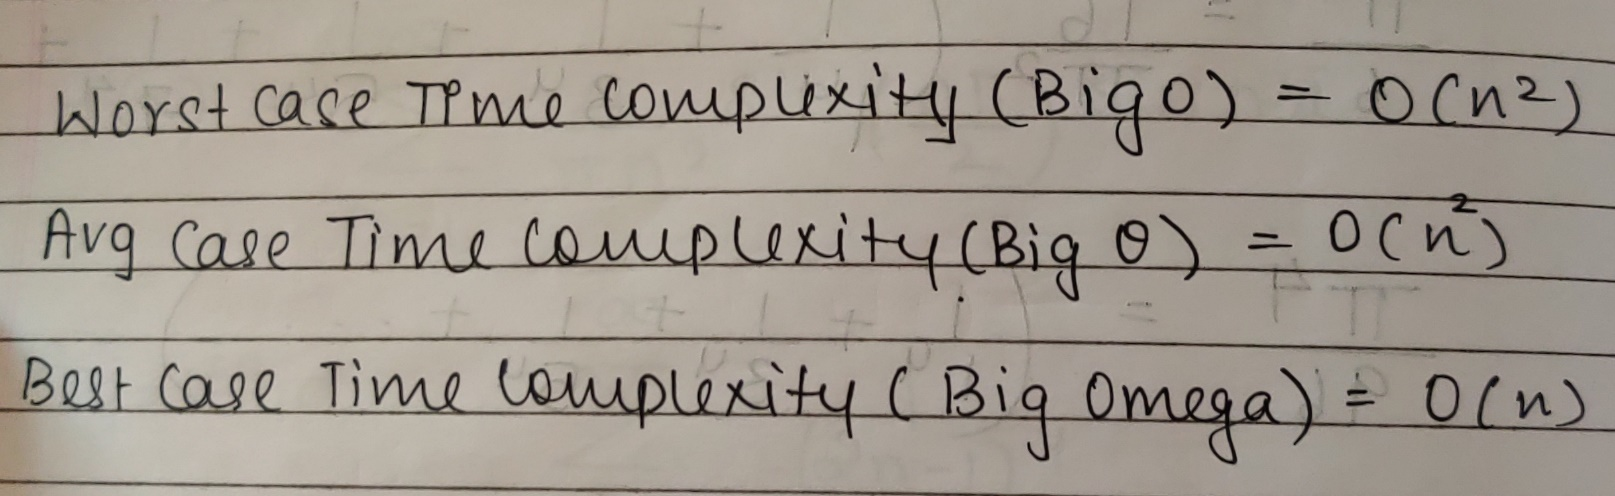 Worst case Time complexity (Big O) = O(n²)
Avg Case Time complexity (Big θ) = O(n²)
Best Case Time complexity (Big Omega) = O(n)